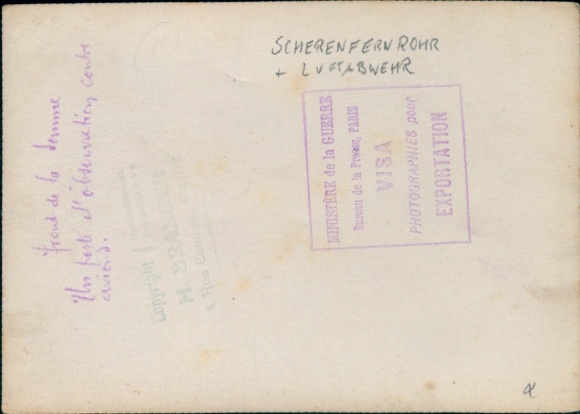 SCHERENFERNROHR
+ LUFTABWEHR
Front de la Somme
Un poste d'observation contre
avions.
MINISTÈRE de la GUERRE
Bureau de la Presse, PARIS
VISA
PHOTOGRAPHIES pour
EXPORTATION
Copyright
M.
Rue